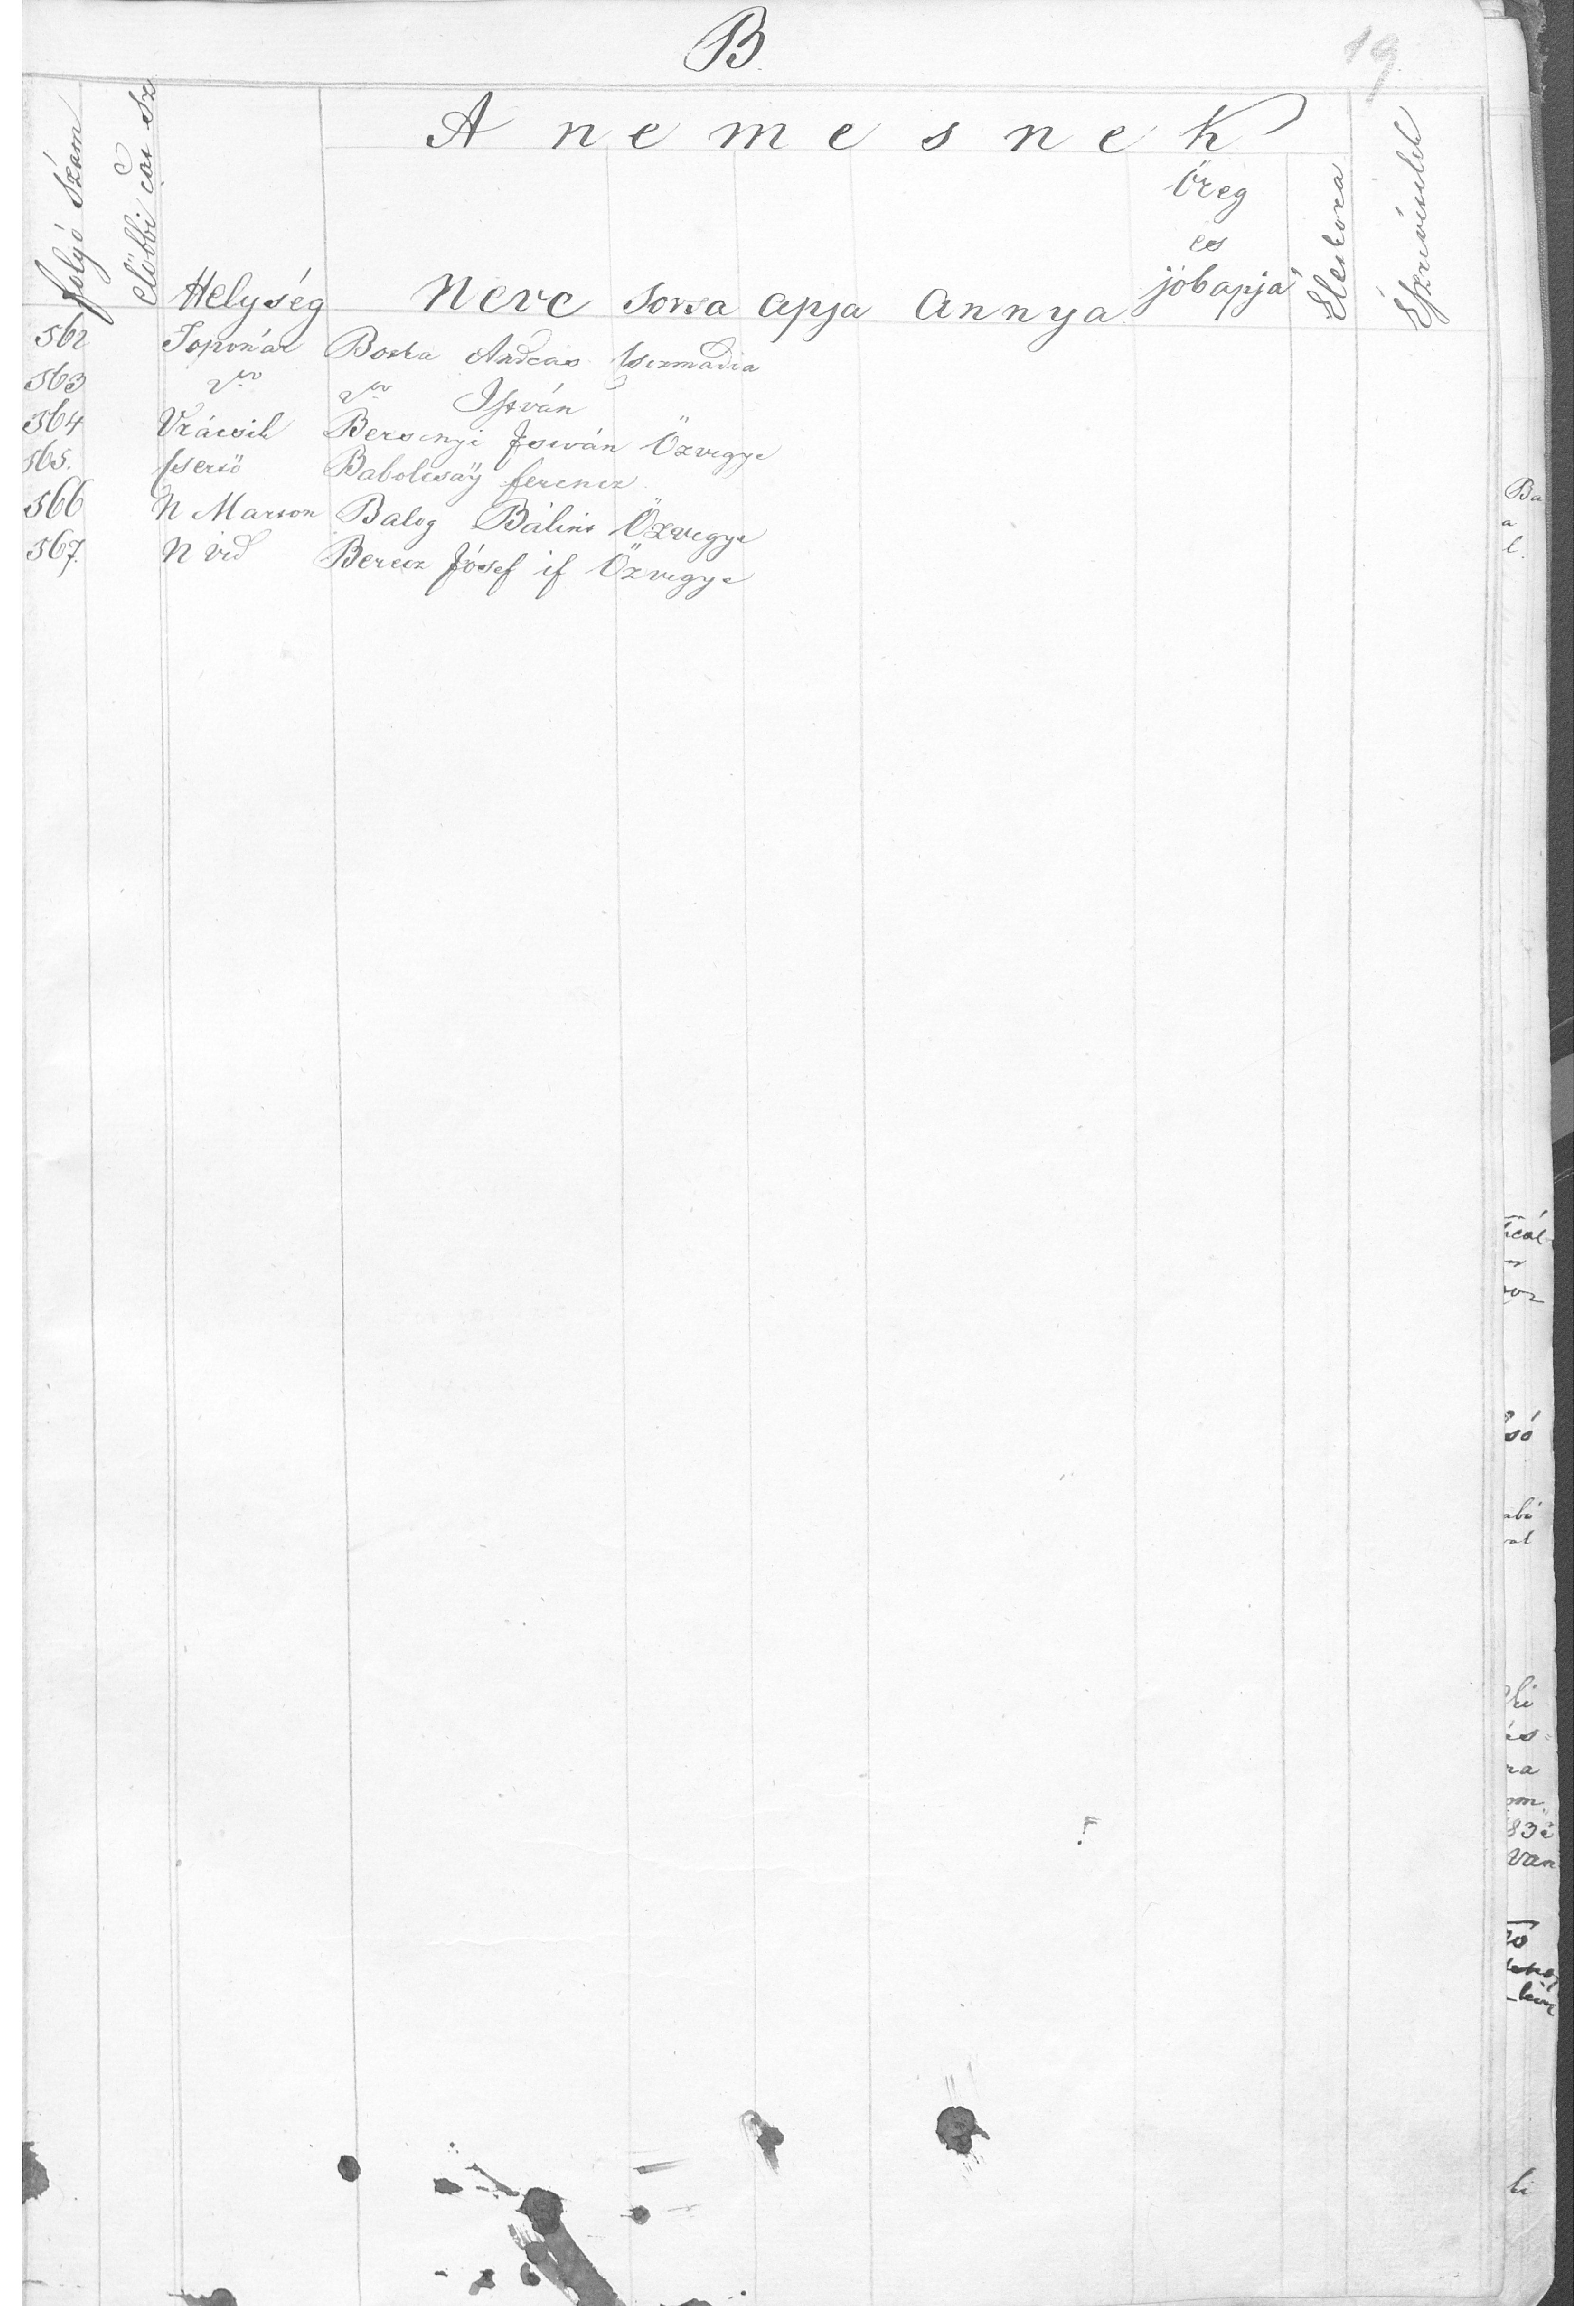 B.
19
A nemesnek
folyó Szám
előbbi
Helység
Neve
Sorsa
Apja
Annya
Öreg
es
jóbapja
Eletkora
Észrevételek
562 Toponár Boska Andras Csizmadia
563 do do István
564 Vrácsik Bersenyi István Özvegye
565. Cserió Babolcsaÿ ferencz
566 N Marton Balog Bálint Özvegye
567. N Vid Berecz Jósef if Özvegye